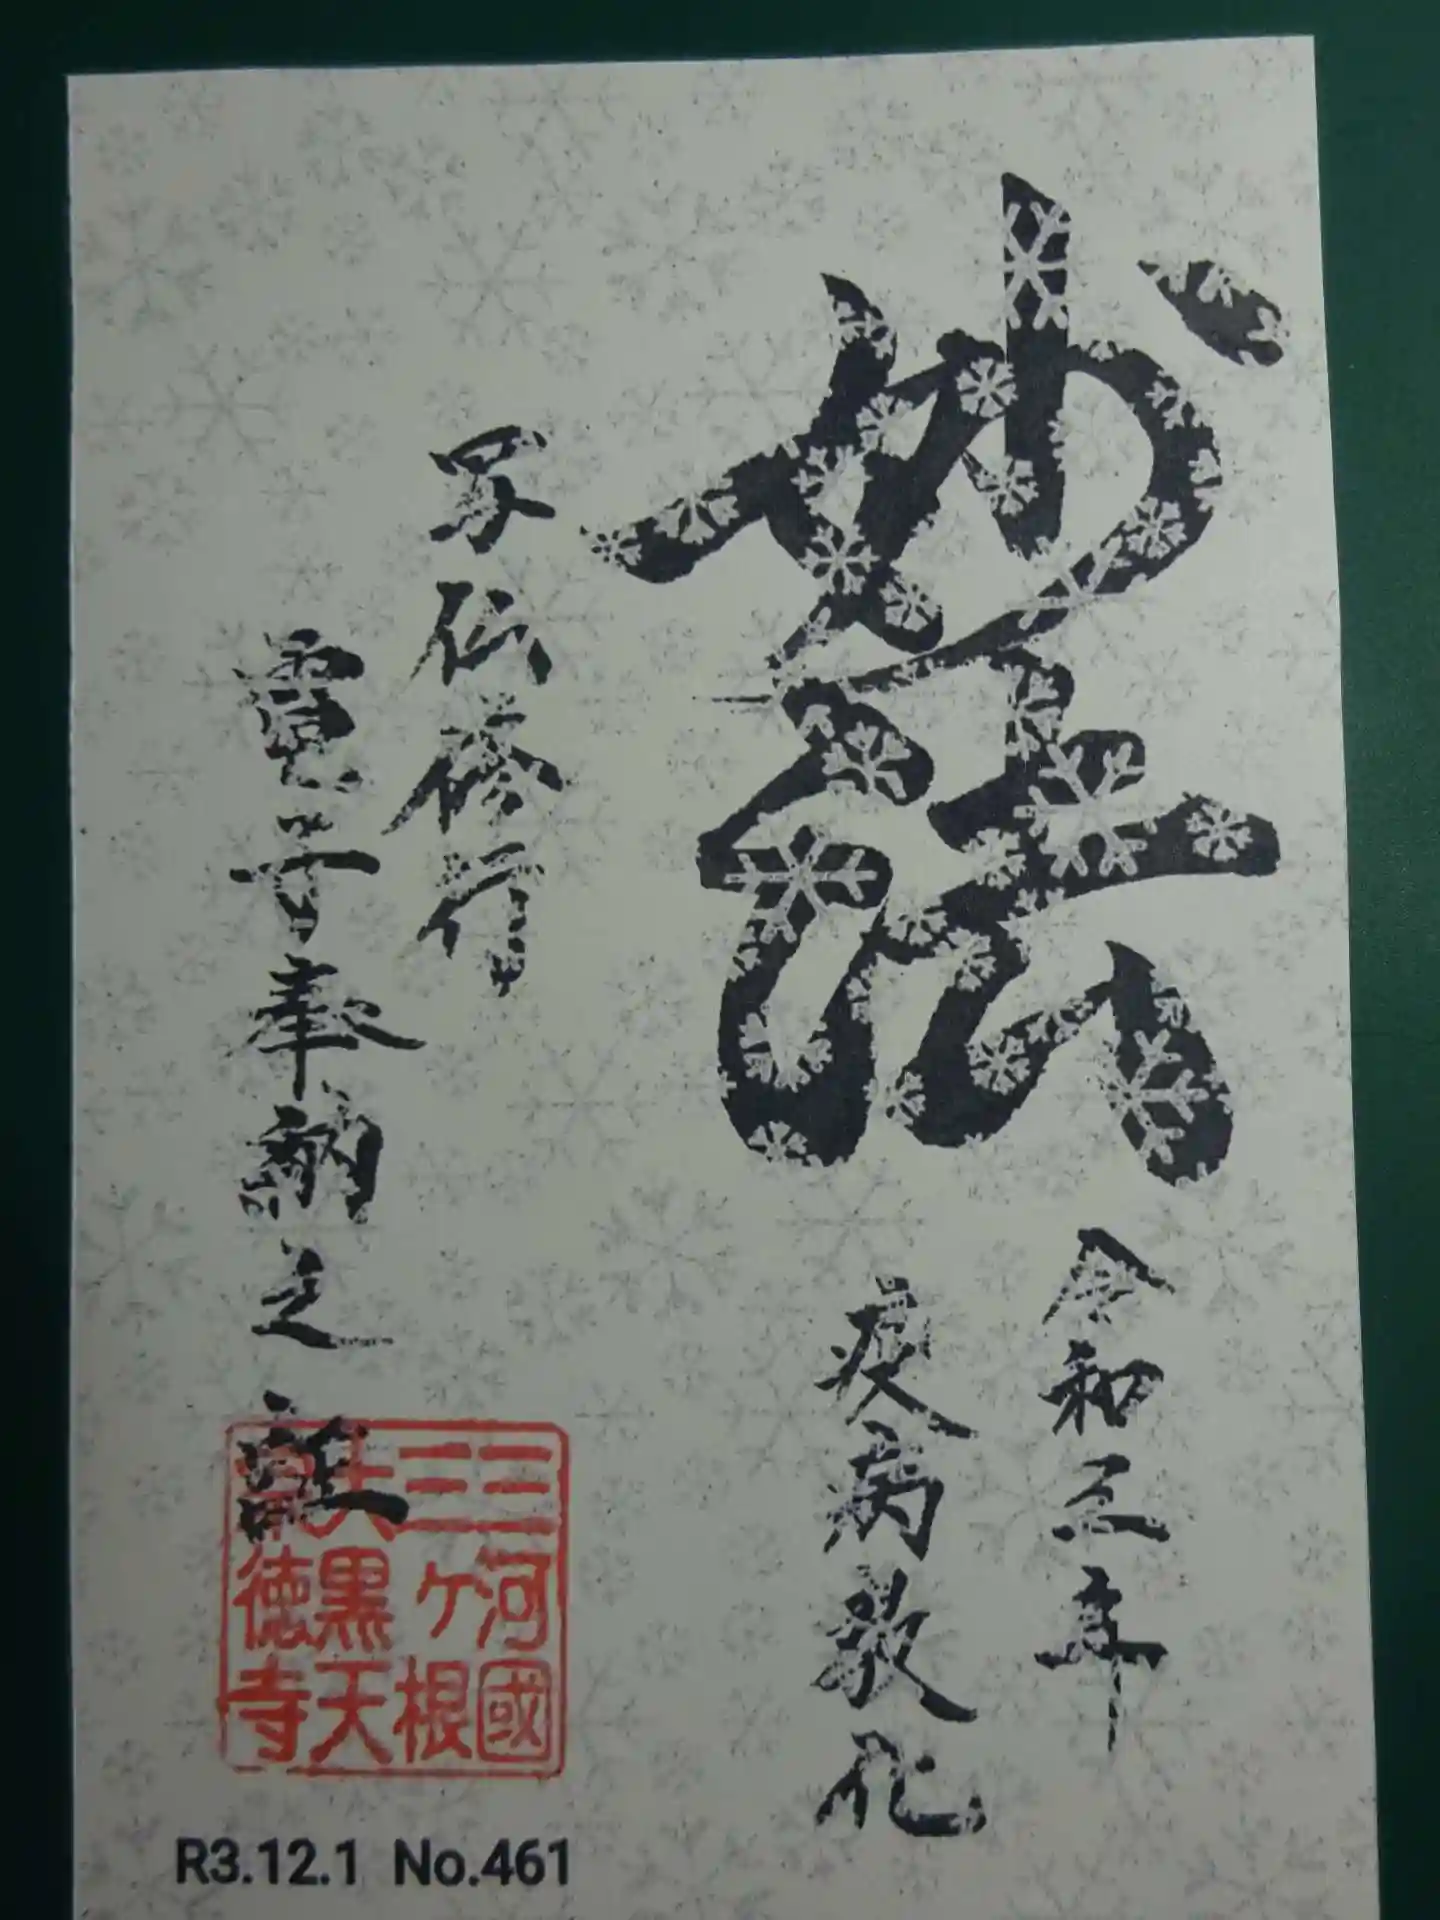 妙法
令和三年
疫病散化
写仏修行
電子奉納之証
三河國
三ヶ根
大黒天
徳寺
R3.12.1 No.461